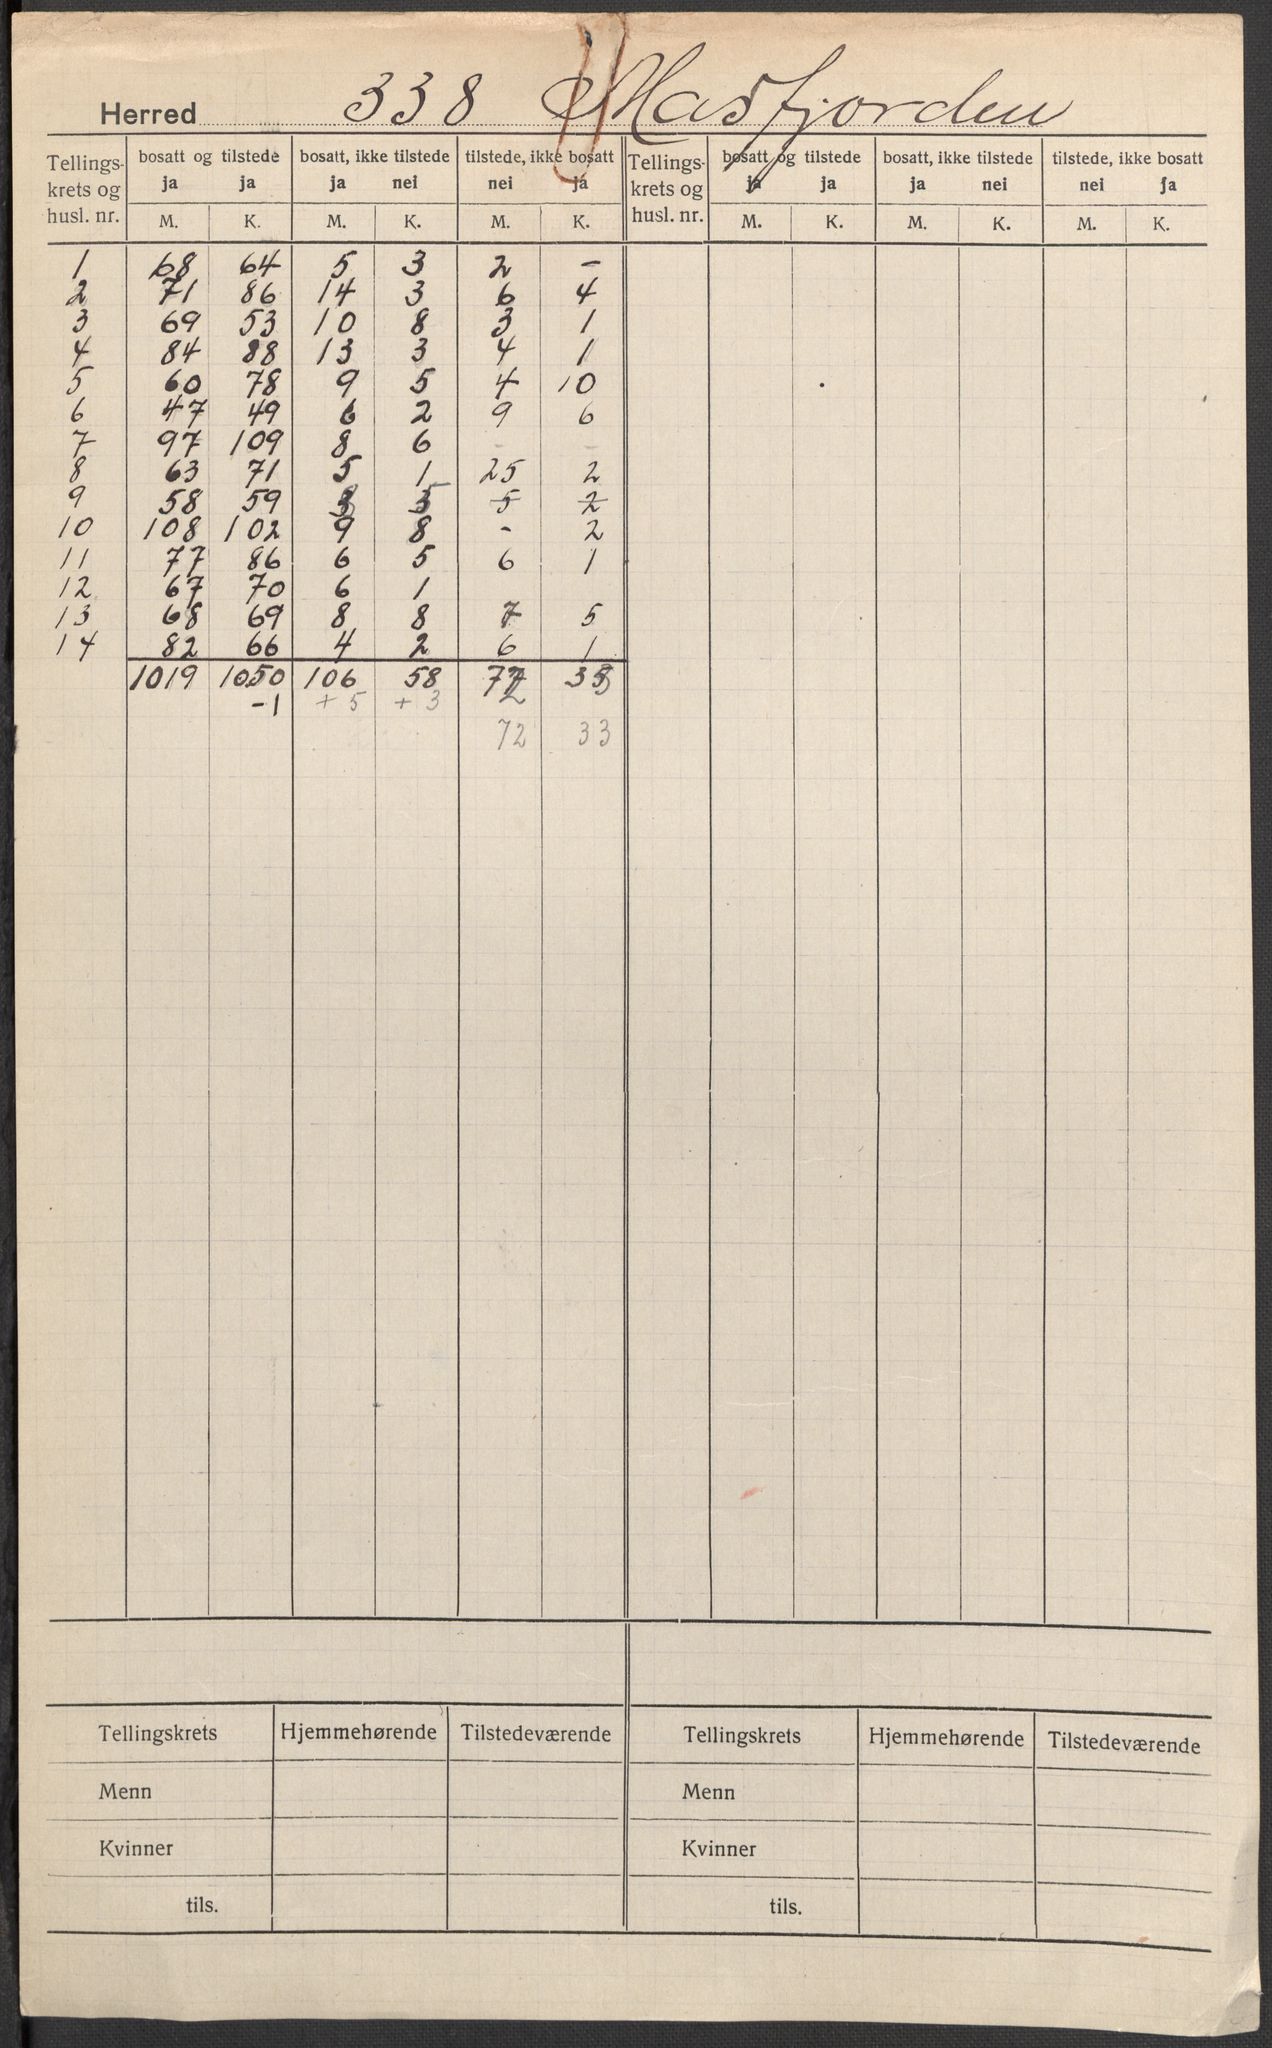 Herred 338 Masfjorden
Tellings- krets og husl. nr. bosatt og tilstede bosatt, ikke tilstede tilstede, ikke bosatt Tellings- krets og husl. nr. bosatt og tilstede bosatt, ikke tilstede tilstede, ikke bosatt
ja ja ja nei nei ja ja ja ja nei nei ja
M. K. M. K. M. K. M. K. M. K. M. K.
1 68 64 5 3 2 -
2 71 86 14 3 6 4
3 69 53 10 8 3 1
4 84 88 13 3 4 1
5 60 78 9 5 4 10
6 47 49 6 2 9 6
7 97 109 8 6 - -
8 63 71 5 1 25 2
9 58 59 3 3 5 2
10 108 102 9 8 - 2
11 77 86 6 5 6 1
12 67 70 6 1
13 68 69 8 8 7 5
14 82 66 4 2 6 1
1019 1050 106 58 77
-1 + 5 + 3 2
72 33
Tellingskrets Hjemmehørende Tilstedeværende Tellingskrets Hjemmehørende Tilstedeværende
Menn Menn
Kvinner Kvinner
tils. tils.